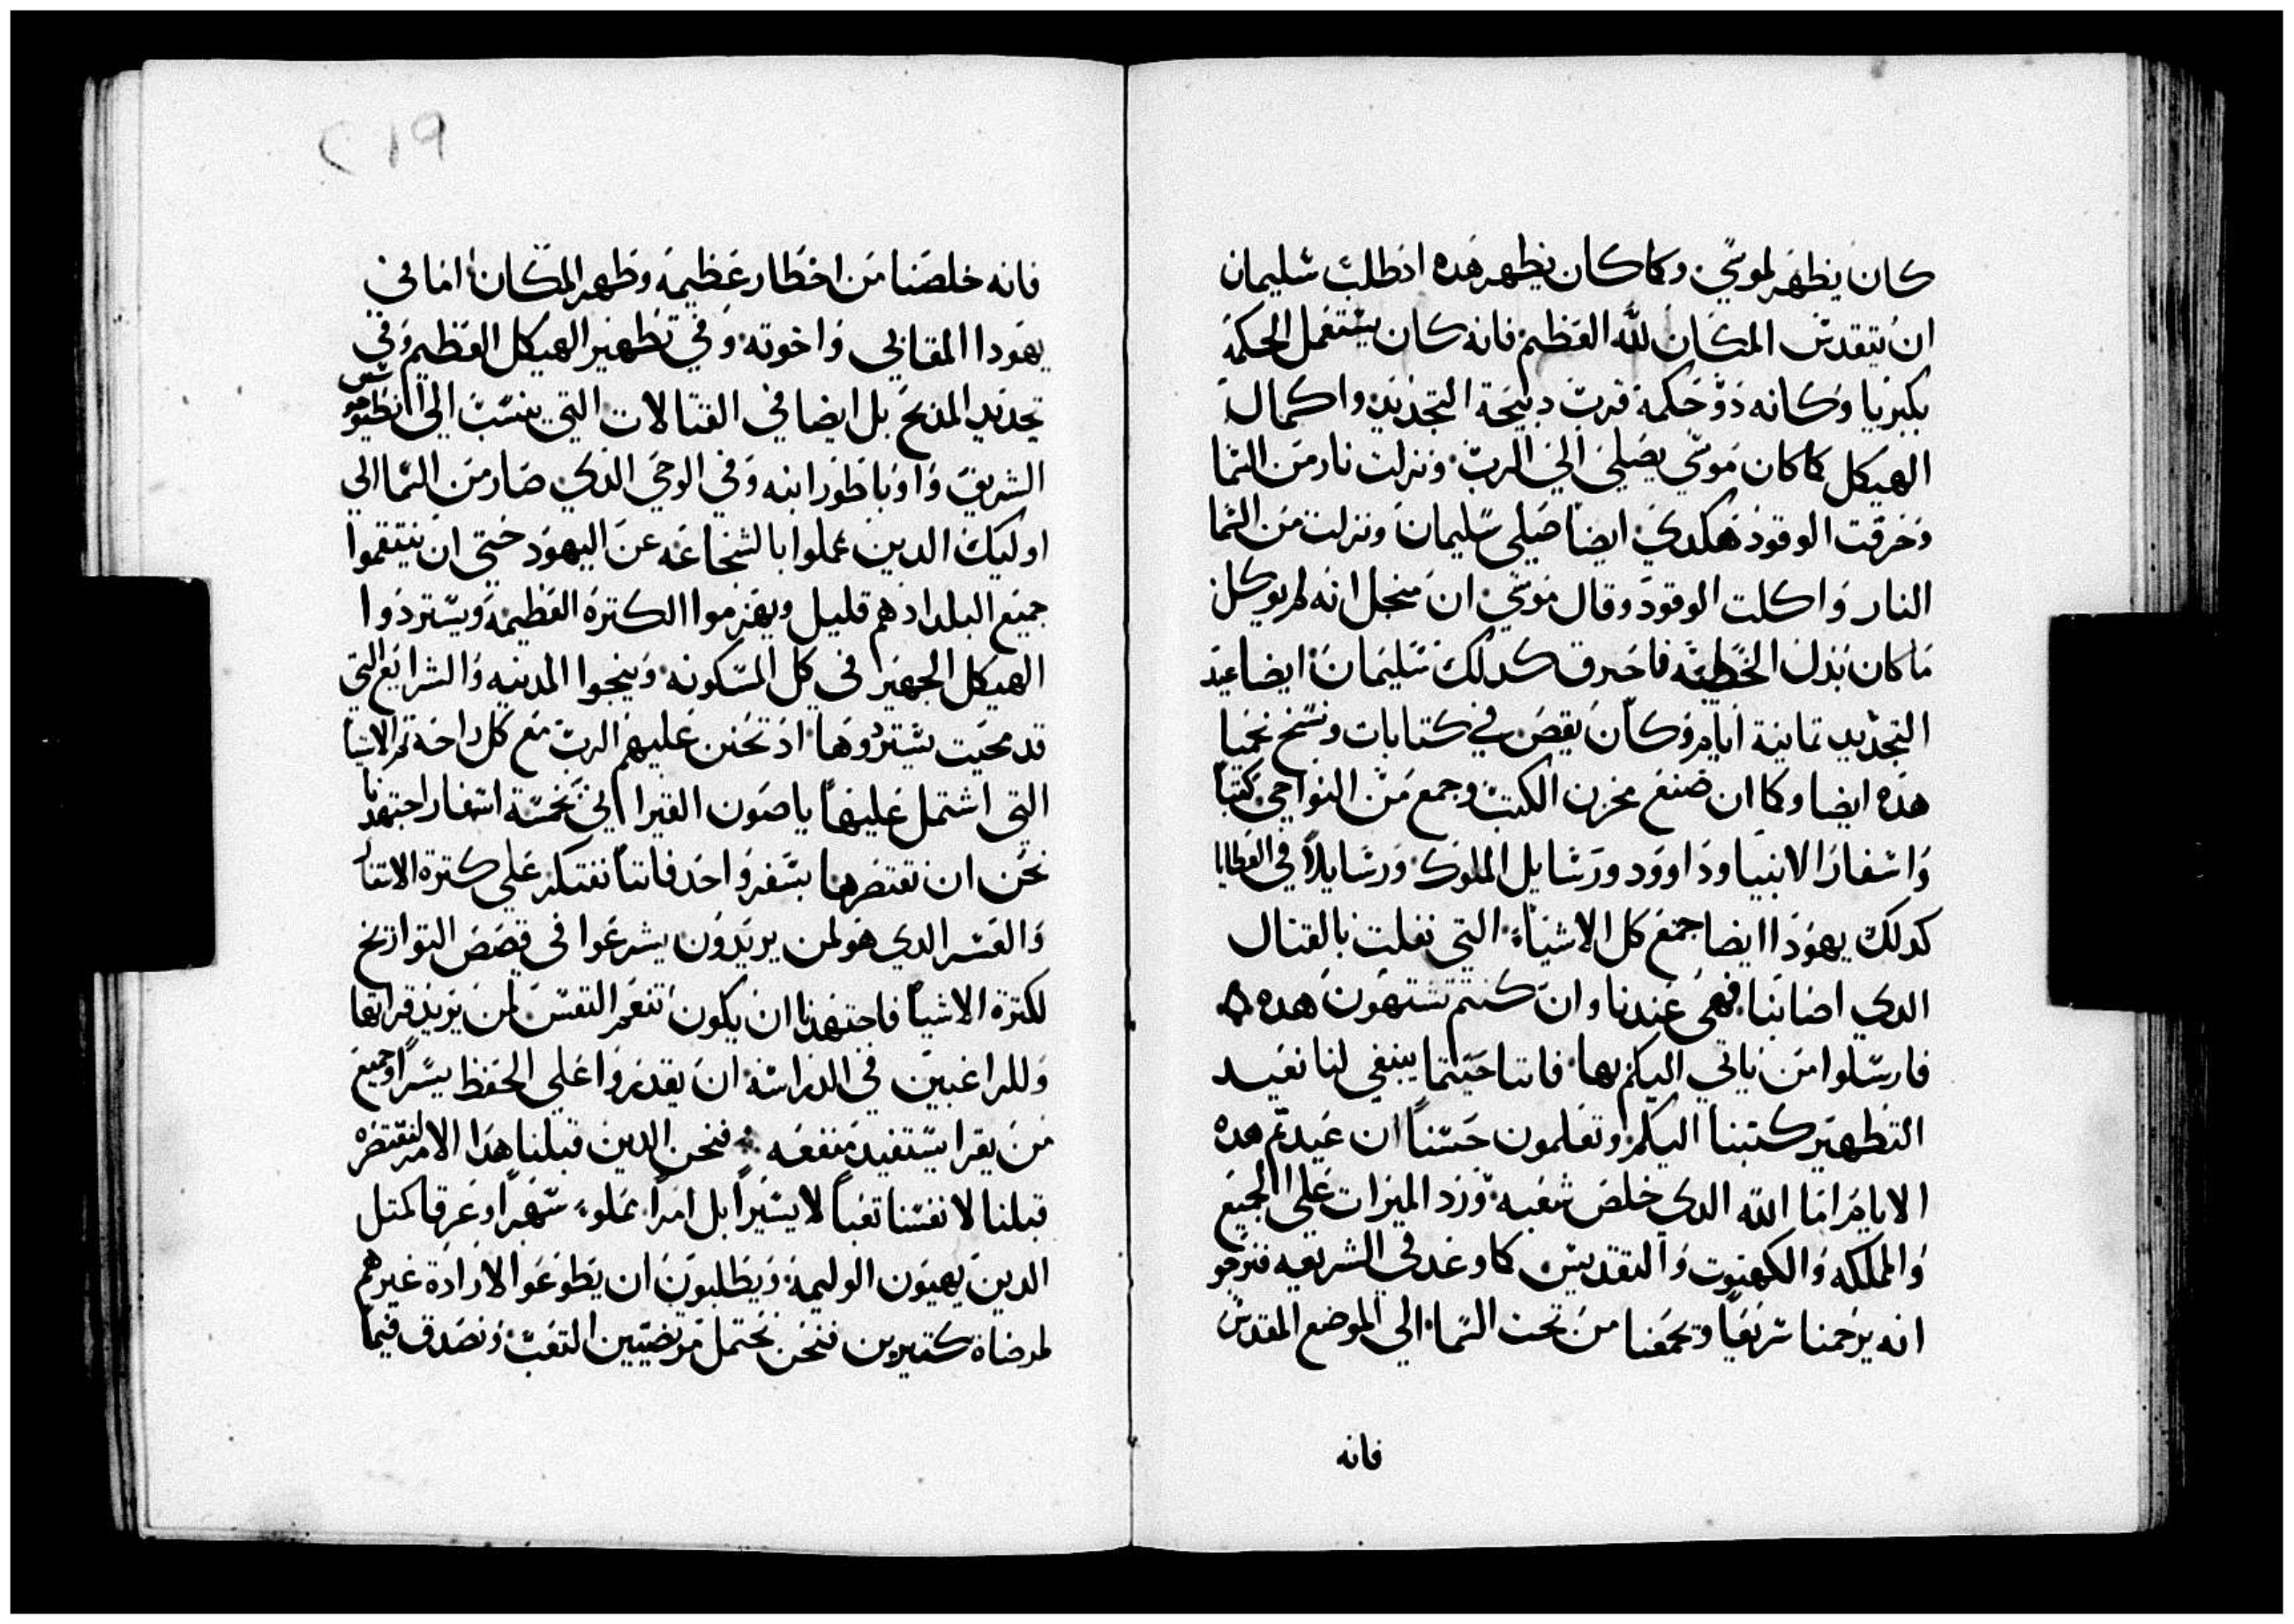 كان يظهر لموسي وكما كان يظهر هده اد طلب سليمان
ان يتقدس المكان لله العظيم فانه كان يستعمل الحكمة
بكبريا وكانه دو حكمة قرب دبيحة التجديد واكمال
الهيكل كما كان موسي يصلي الي الرب ونزلت نار من السما
وحرقت الوقود هكدي ايضا صلي سليمان ونزلت من السما
النار واكلت الوقود وقال موسي ان من اجل انه لم يوكل
ما كان بدل الخطيه فاحترق كدلك سليمان ايضا عيد
التجديد تمانية ايام وكان يقص في كتابات ونسخ نحميا
هده ايضا وكما ان صنع مخزن الكتب وجمع من النواحي كتبا
واسفار الانبيا وداوود ورسايل الملوك ورسايلا في العطايا
كدلك يهودا ايضا جمع كل الاشياء التي نفلت بالقتال
الدي اصابنا فهي عندنا وان كنتم تشتهون هده
فارسلوا من ياتي اليكم بها فاننا حيتما ينبغي لنا نعيد
التطهير كتبنا اليكم وتعلمون حسنا ان عيدتم هده
الايام اما الله الدي خلص شعبه ورد الميرات علي الجميع
والمملكه والكهنوت والتقديس كما وعد في الشريعه فنرجو
انه يرحمنا سريعا وتجمعنا من تحت السما الي الموضع المقدس
فانه
٢١٩
فانه خلصنا من اخطار عظيمه وطهر المكان اما في
يهودا المقابي واخوته وفي تطهير الهيكل العظيم وفي
تجديد المدبح بل ايضا في القتالات التي ينسب الي انطيوخوس
الشريف واوباطور ابنه وفي الوحي الدي صار من السما الي
اوليك الدين عملوا بالشجاعه عن اليهود حتي ان ينتقموا
جميع البلد اد هم قليل ويهزموا الكترة العظيمة ويستردوا
الهيكل الجهير في كل المسكونه وينجوا المدينه والشرايع التي
قد محيت يستردوها اد تحنن عليهم الرب مع كل راحة تم الاشيا
التي اشتمل عليها ياصون القيراني خمسة اسفار اجتهدنا
نحن ان نقتصرها بسفر واحد فاننا نفتكر علي كترة الاسفار
والعسر الدي هو لمن يريدون يشرعوا في قصص التواريخ
لكترة الاشيا فاجتهدنا ان يكون تنعم النفس لمن يريد قراتها
وللراغبين في الدراسة ان يقدروا علي الحفظ يسرا وجميع
من يقرا يستفيد منفعه فنحن الدين قبلنا هدا الامر لنقتصره
قبلنا لانفسنا تعبا لا يسيرا بل امرا مملوء سهرا وعرقا كمتل
الدين يهيون الوليمة ويطلبون ان يطوعوا لارادة غيرهم
لمرضاة كتيرين فنحن نحتمل مرتضيين التعب ونصدق فيما